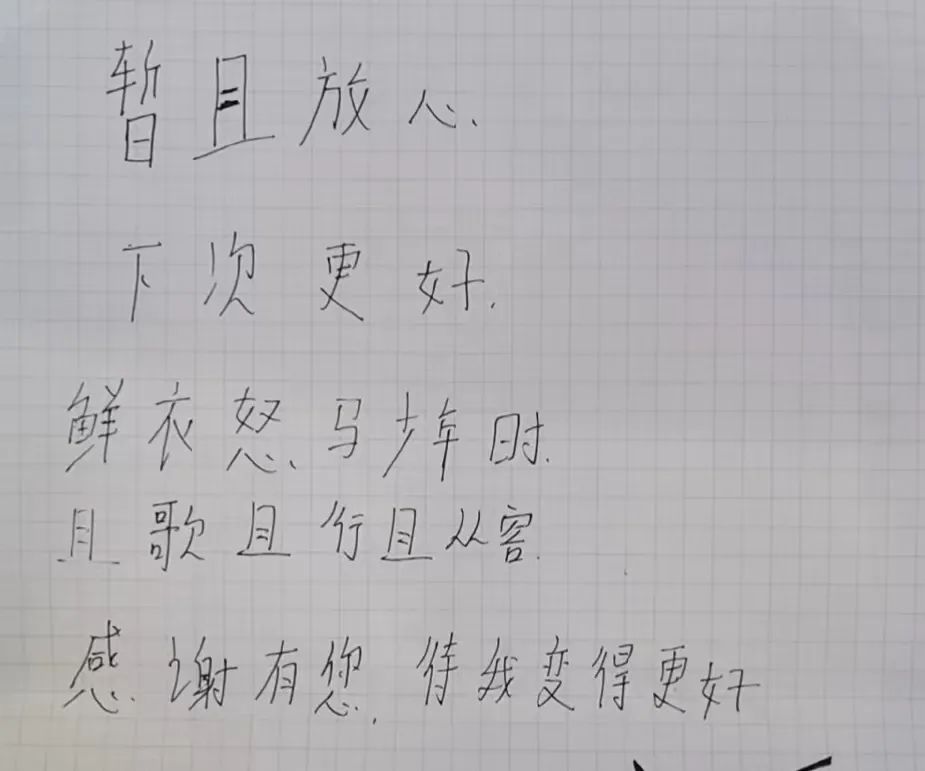 暂且放心.
下次更好.
鲜衣怒马少年时.
且歌且行且从容.
感谢有您,待我变得更好